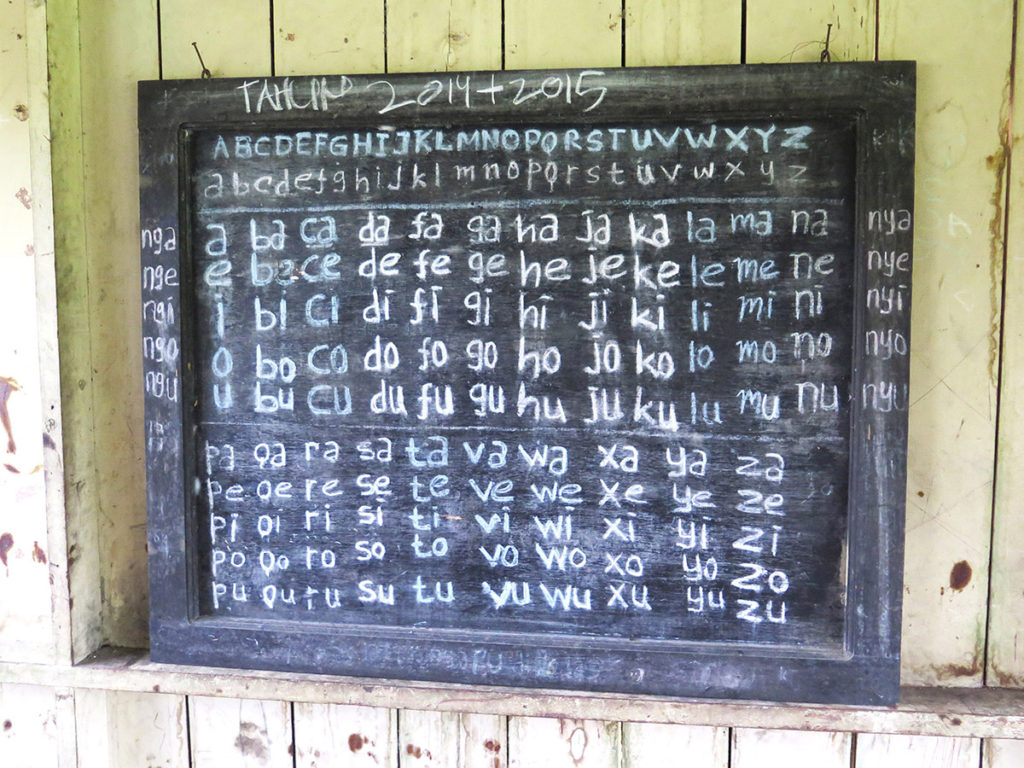 TAHUN 2014+2015
ABCDEFGHIJKLMNOPQRSTUVWXYZ
abcdefghijklmnopqrstuvwxyz
nga a ba ca da fa ga ha ja ka la ma na nya
nge e be ce de fe ge he je ke le me ne nye
ngi i bi ci di fi gi hi ji ki li mi ni nyi
ngo o bo co do fo go ho jo ko lo mo no nyo
ngu u bu cu du fu gu hu ju ku lu mu nu nyu
pa qa ra sa ta va wa xa ya za
pe qe re se te ve we xe ye ze
pi qi ri si ti vi wi xi yi zi
po qo ro so to vo wo xo yo zo
pu qu ru su tu vu wu xu yu zu